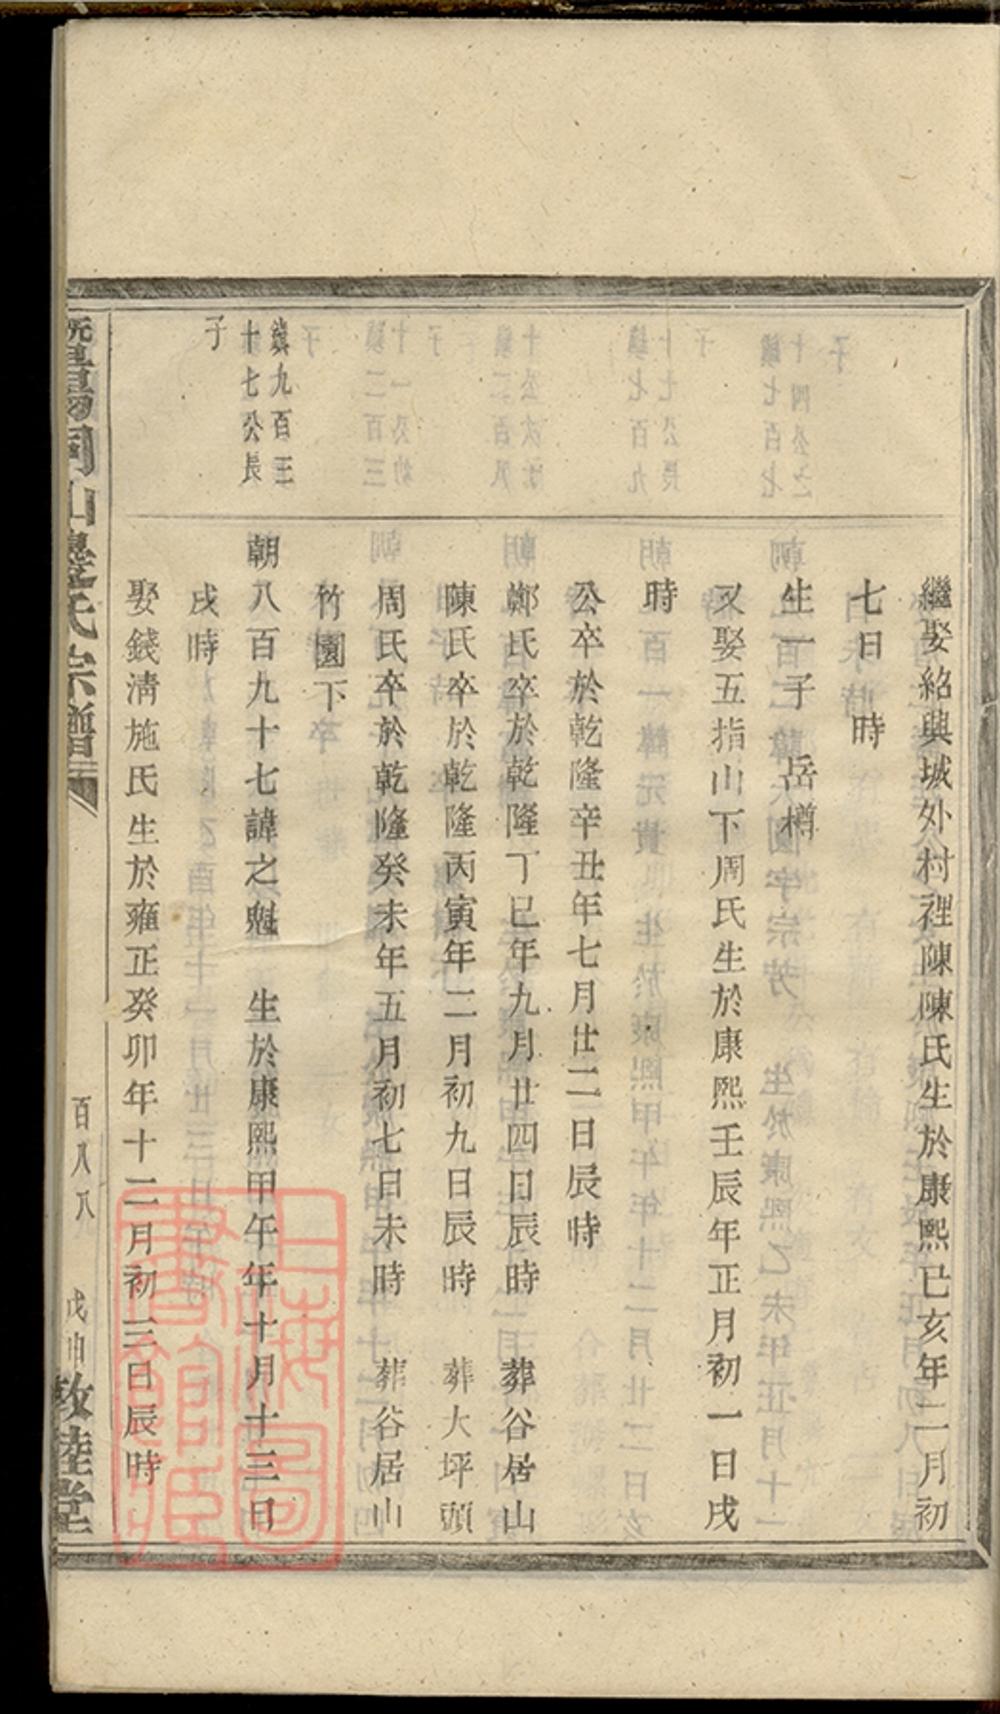 繼娶紹興城外村裡陳陳氏生於康熙己亥年二月初
七日時
生一子　岳樽
又娶五指山下周氏生於康熙壬辰年正月初一日戌
時
公卒於乾隆辛丑年七月廿二日辰時
鄭氏卒於乾隆丁巳年九月廿四日辰時　葬谷居山
陳氏卒於乾隆丙寅年二月初九日辰時　葬大坪頭
周氏卒於乾隆癸未年五月初七日未時　葬谷居山
竹園下
鎮九百三
十七公長
子
朝八百九十七諱之魁　生於康熙甲午年十月十三日
戌時
娶錢清施氏生於雍正癸卯年十二月初三日辰時
暨陽同山邊氏宗譜
百八八
戊申
敦睦堂
上海圖
書館藏